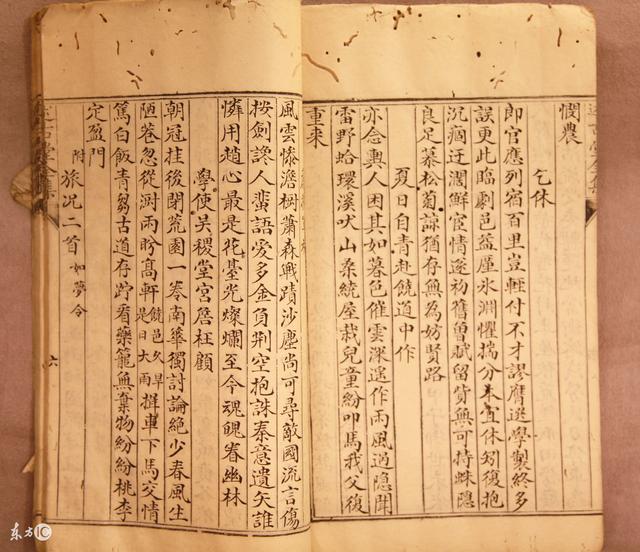 憫農
乞休
郎官應列宿百里豈輕付不才謬膺選學製終多
誤更此臨劇邑益厪氷淵懼揣分本宜休矧復抱
沉痼迂濶鮮宦情遂初舊曾賦留貲無可持蛛隱
良足慕松菊諒猶存無為妨賢路
夏日自青赴饒道中作
亦念輿人困其如暮色催雲深遙作雨風過隱聞
雷野蛤環溪吠山桑統屋栽兒童紛叩馬我父復
重來
風雲慘澹樹蕭森戰蹟沙塵尚可尋敵國流言傷
按劍讒人蜚語愛多金負荆空抱誅秦意遺矢誰
憐用趙心最是花臺光燦爛至今魂魄眷幽林
學使吴稷堂宮詹枉顧
朝冠挂後閉荒園一卷南華獨討論絕少春風生
陋巷忽從澍雨盼高軒饒邑久旱是日大雨揖車下馬交情
篤白飯青芻古道存跨看藥籠無棄物紛紛桃李
定盈門
附旅况二首如夢令
六
东方IC